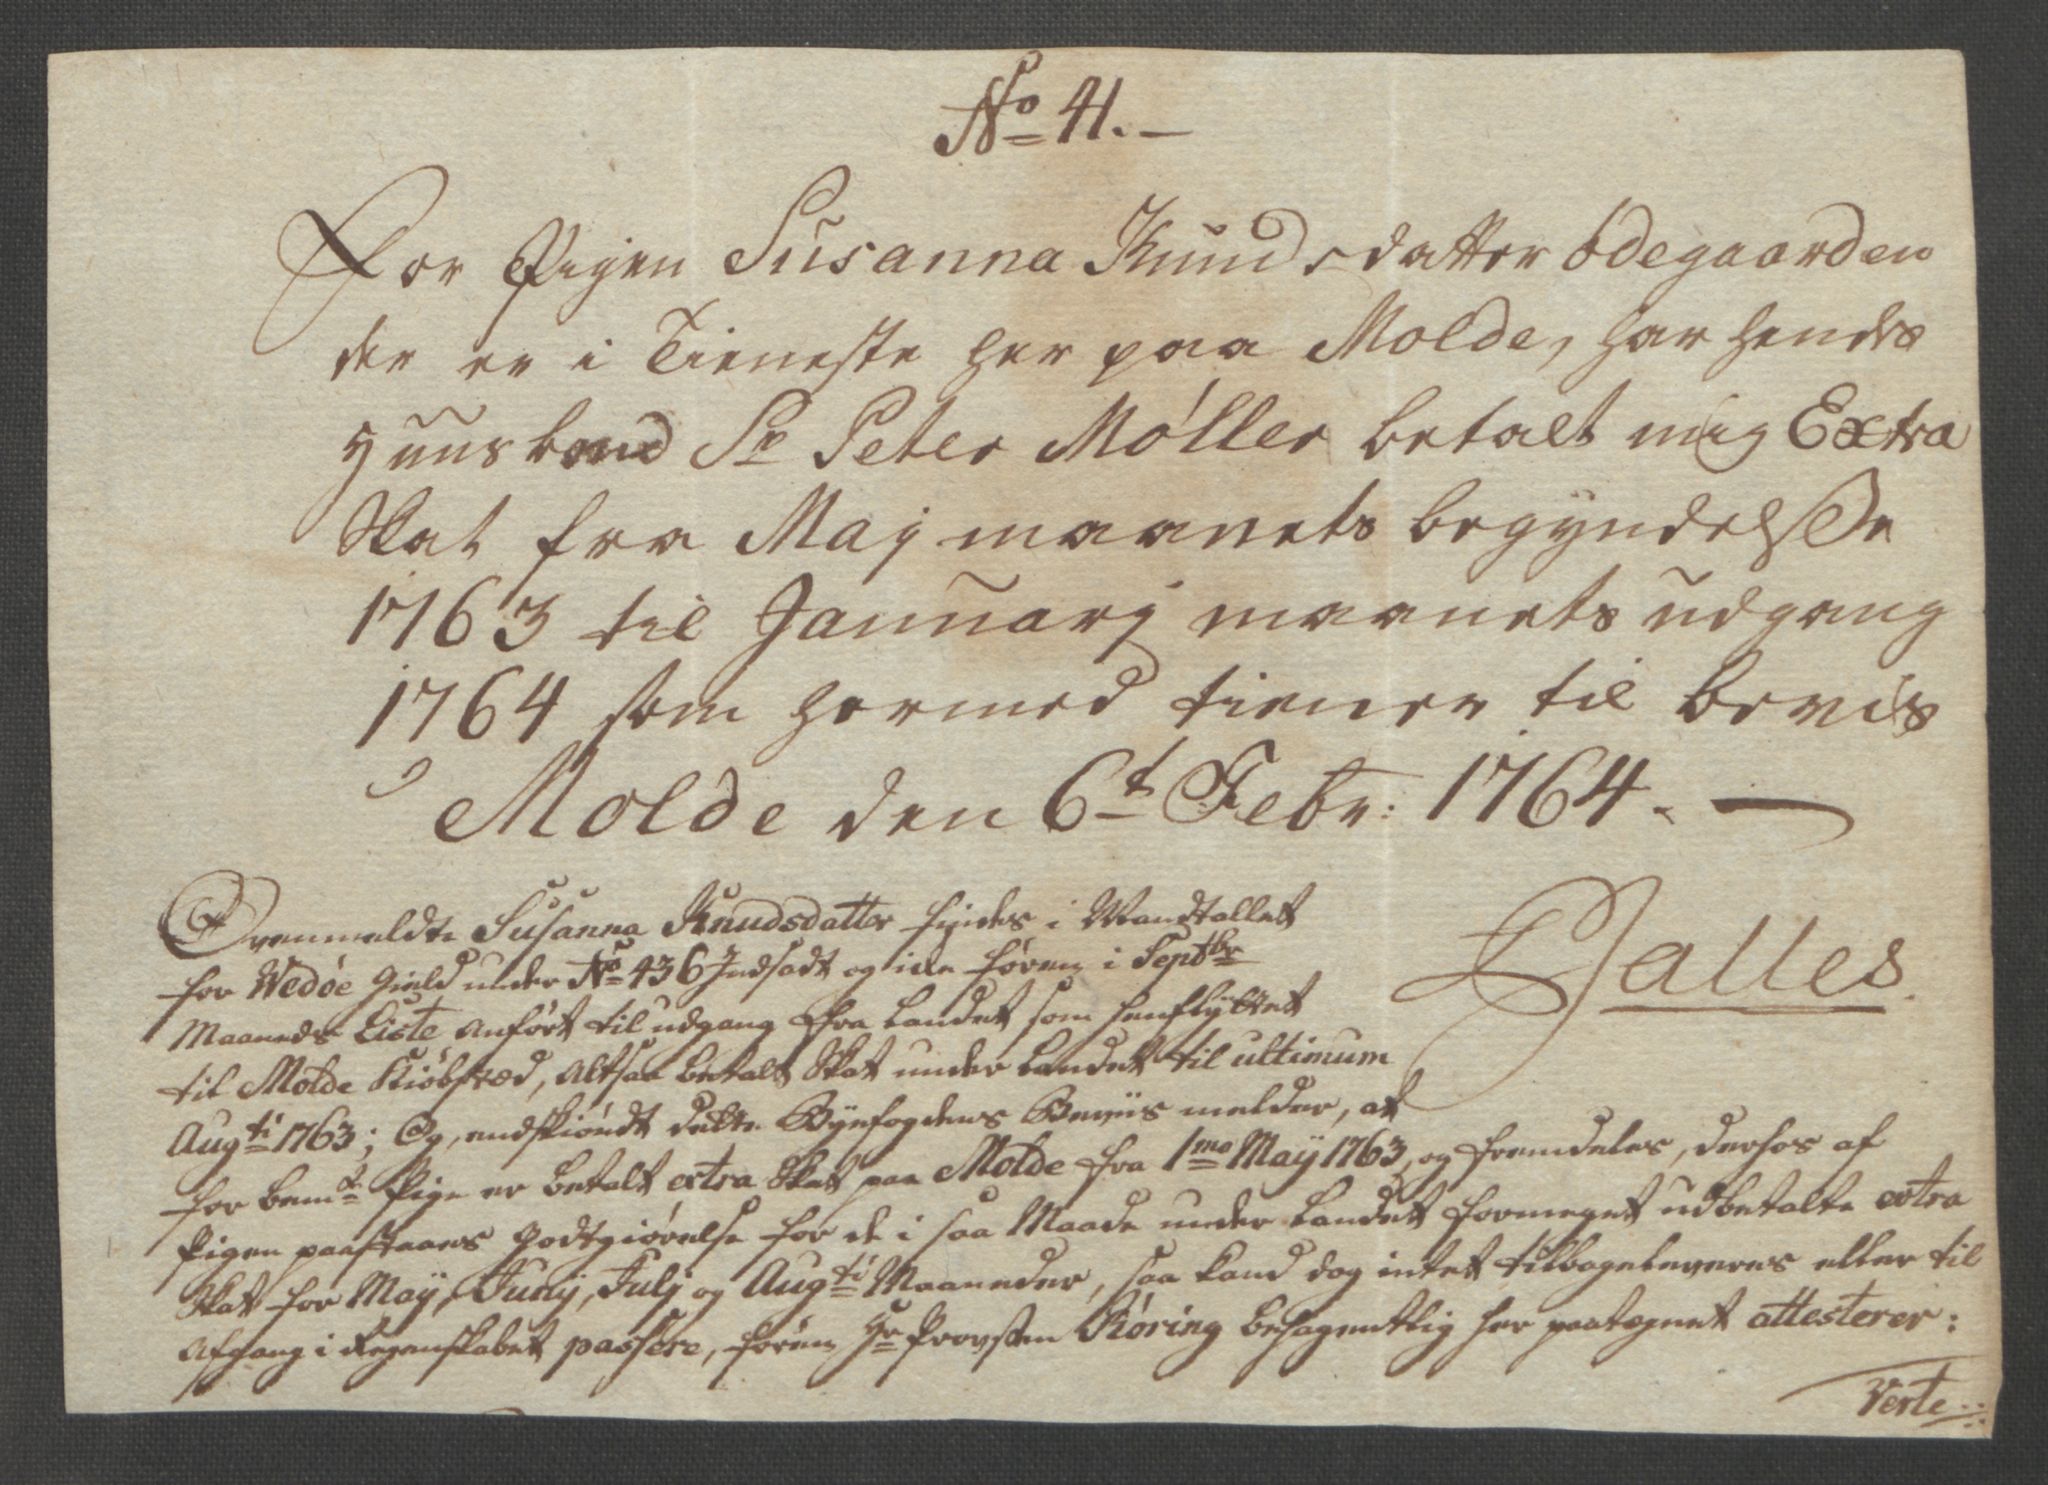 No 41. —
For Pigen Susanna Knudsdatter Ødegaarden
der er i Tieneste her paa Molde, har hendes
Huusbond Sr Peter Møller betalt mig Extra
Skat fra Maj maanets begyndelsse
1763 til Januarj maanets udgang
1764 som hermed tiener til bevis
Molde den 6t Febr: 1764. —
Dalles
Ovenmeldte Susanna Knudsdatter findes i Mandtallet
for Wedøe Gield under No 436 Indsadt og ikke føren i Septbr
Maaneds Liste Anført til udgang fra Landet som henflyttet
til Molde Kiøbstæd, Altsaa betalt Skat under Landet til ultimum
Augti 1763; Og, endskiøndt dette Byefogdens Beviis melder, at
for bemte Pige er betalt extra Skat paa Molde fra 1mo Maÿ 1763, og fremdeles, derhos af
Pigen paastaaes Godtgiørelse for de i saa Maade under Landet formeget udbetalte extra
Skat for Maÿ, Junij, Julj og Augti Maaneder, saa kand dog intet tilbageleveres eller til
Afgang i Regenskabet passere, førend Hr Provsten Røring behagentlig her paategnet attesterer:
Verte